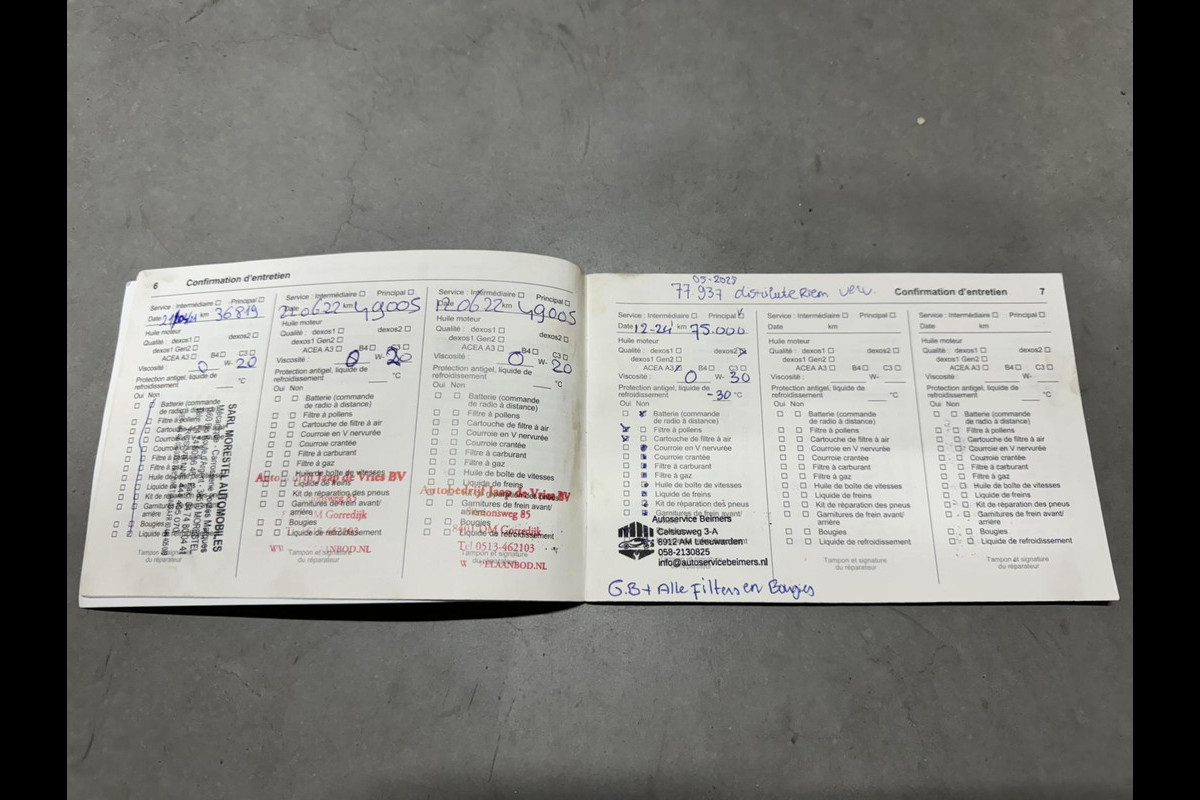 6 Confirmation d'entretien
Service : Intermédiaire Principal
Date km 36819
Huile moteur
Qualité : dexos1 dexos2
dexos1 Gen2
ACEA A3 B4 C3
Viscosité : 0 W- 20
Protection antigel, liquide de
refroidissement °C
Oui Non
Batterie (commande
de radio à distance)
Filtre à pollens
Liquide de
Kit de réparation
Garnitures
arrière
Bougies
Liquide de refroidissement
Tampon et signature
du réparateur
SARL MORESTEL AUTOMOBILES
Service : Intermédiaire Principal
Date 22.06.22 km 49005
Huile moteur
Qualité : dexos1 dexos2
dexos1 Gen2
ACEA A3 B4 C3
Viscosité : 0 W- 20
Protection antigel, liquide de
refroidissement °C
Oui Non
Batterie (commande
de radio à distance)
Filtre à pollens
Cartouche de filtre à air
Courroie en V nervurée
Courroie crantée
Filtre à carburant
Filtre à gaz
Huile de boîte de vitesses
Liquide de freins
Kit de réparation des pneus
Garnitures de frein avant/
arrière
Bougies
Liquide de refroidissement
Tampon et signature
du réparateur
Jaap de Vries BV
Gorredijk
Service : Intermédiaire Principal
Date 22.06.22 km 49005
Huile moteur
Qualité : dexos1 dexos2
dexos1 Gen2
ACEA A3 B4 C3
Viscosité : 0 W- 20
Protection antigel, liquide de
refroidissement °C
Oui Non
Batterie (commande
de radio à distance)
Filtre à pollens
Cartouche de filtre à air
Courroie en V nervurée
Courroie crantée
Filtre à carburant
Filtre à gaz
Huile de boîte de vitesses
Liquide de freins
Kit de réparation des pneus
Garnitures de frein avant/
arrière
Bougies
Liquide de refroidissement
Tampon et signature
du réparateur
Autobedrijf Jaap de Vries BV
85
8401 DM Gorredijk
Tel 0513-462103
77937 distributie Riem verv.
Confirmation d'entretien 7
Service : Intermédiaire Principal
Date 12-24 km 75.000
Huile moteur
Qualité : dexos1 dexos2
dexos1 Gen2
ACEA A3 B4 C3
Viscosité : 0 W- 30
Protection antigel, liquide de
refroidissement -30 °C
Oui Non
Batterie (commande
de radio à distance)
Filtre à pollens
Cartouche de filtre à air
Courroie en V nervurée
Courroie crantée
Filtre à carburant
Filtre à gaz
Huile de boîte de vitesses
Liquide de freins
Kit de réparation des pneus
Garnitures de frein avant/
Autoservice Beimers
Celsiusweg 3-A
8912 AM Leeuwarden
058-2130825
info@autoservicebeimers.nl
G.B + Alle Filters en Bougies
Service : Intermédiaire Principal
Date km
Huile moteur
Qualité : dexos1 dexos2
dexos1 Gen2
ACEA A3 B4 C3
Viscosité : W-
Protection antigel, liquide de
refroidissement °C
Oui Non
Batterie (commande
de radio à distance)
Filtre à pollens
Cartouche de filtre à air
Courroie en V nervurée
Courroie crantée
Filtre à carburant
Filtre à gaz
Huile de boîte de vitesses
Liquide de freins
Kit de réparation des pneus
Garnitures de frein avant/
arrière
Bougies
Liquide de refroidissement
Tampon et signature
du réparateur
Service : Intermédiaire Principal
Date km
Huile moteur
Qualité : dexos1 dexos2
dexos1 Gen2
ACEA A3 B4 C3
Viscosité : W-
Protection antigel, liquide de
refroidissement °C
Oui Non
Batterie (commande
de radio à distance)
Filtre à pollens
Cartouche de filtre à air
Courroie en V nervurée
Courroie crantée
Filtre à carburant
Filtre à gaz
Huile de boîte de vitesses
Liquide de freins
Kit de réparation des pneus
Garnitures de frein avant/
arrière
Bougies
Liquide de refroidissement
Tampon et signature
du réparateur